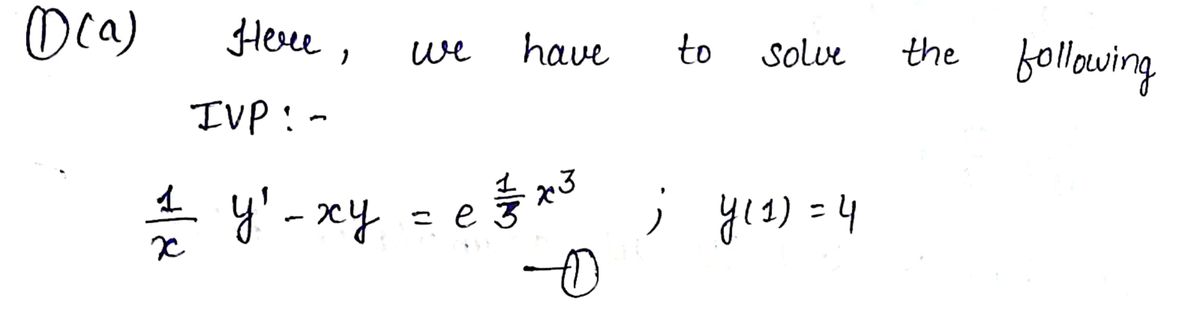 ①(a) Here, we have to solve the following
IVP :-
1/x y' - xy = e^{1/3 x^3} ; y(1) = 4
—①